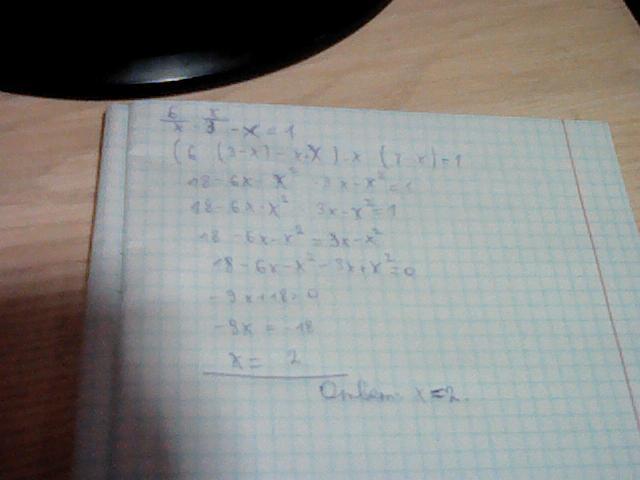 6/x - x/3 - x = 1
(6 (3-x) - x·x) - x (3-x) = 1
18 - 6x - x² 3x - x² = 1
18 - 6x - x² 3x - x² = 1
18 - 6x - x² = 3x - x²
18 - 6x - x² - 3x + x² = 0
- 9x + 18 = 0
- 9x = -18
x = 2
Ответ: x = 2.